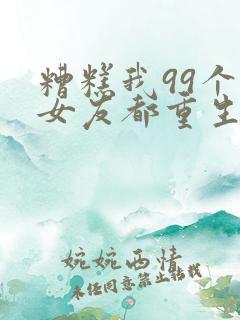 糟糕我99个
女友都重生
婉婉西情
未经同意禁止转载